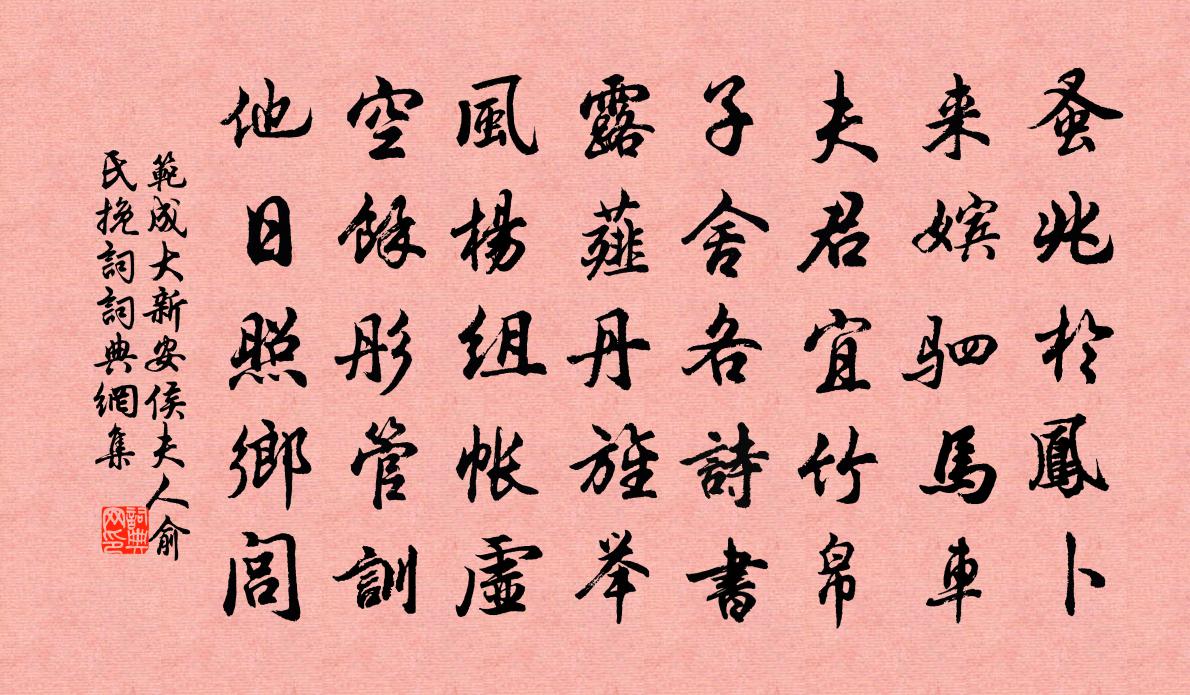 蚤兆於鳳卜
来嫔驷馬車
夫君宜竹帛
子舍各詩書
露薤丹旌举
風楊组帐虚
空餘彤管訓
他日照鄉闾
範成大新安侯夫人俞
氏挽詞詞典網集
詞典
网印